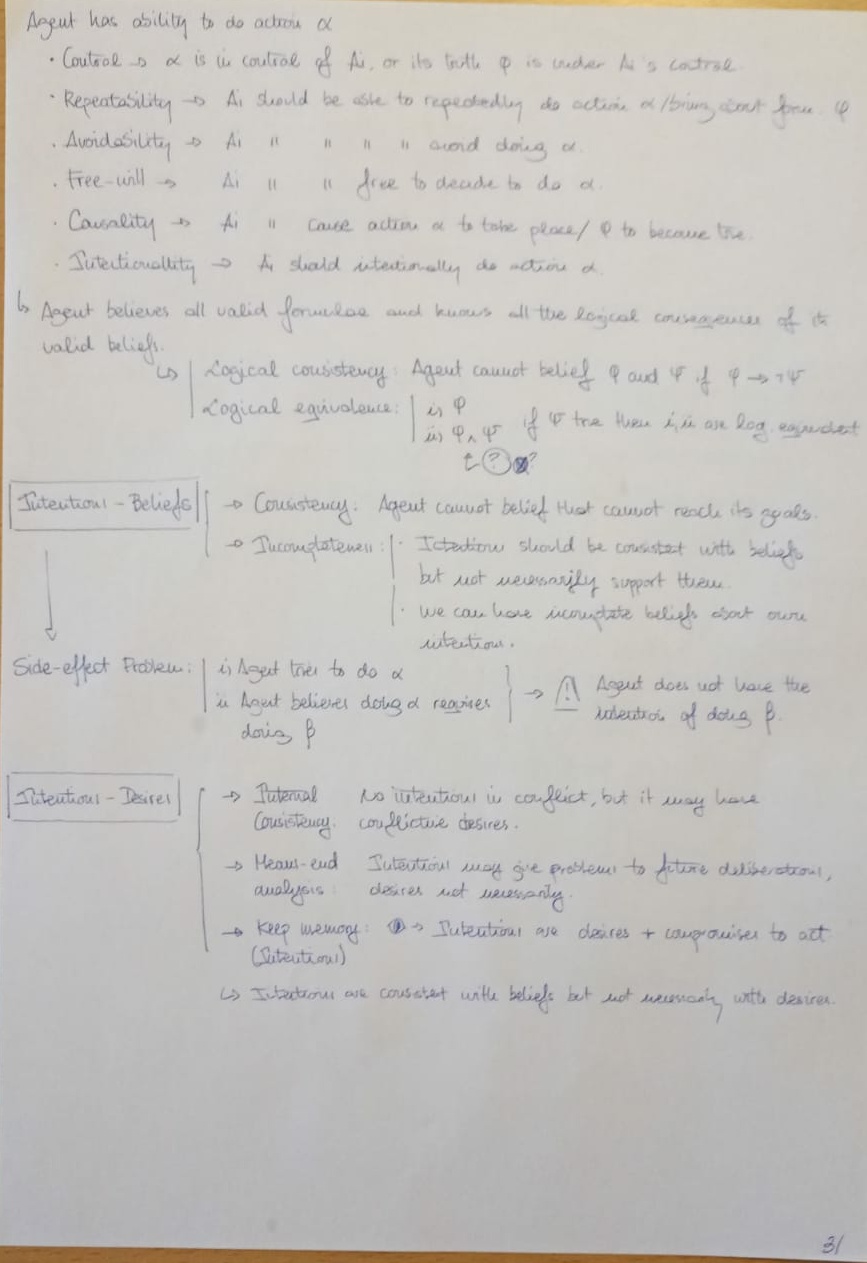 Agent has ability to do action α
· Control → α is in control of Ai, or its truth φ is under Ai's control.
· Repeatability → Ai should be able to repeatedly do action α/bring about form. φ
· Avoidability → Ai " " " " avoid doing α.
· Free-will → Ai " " free to decide to do α.
· Causality → Ai " cause action α to take place/ φ to become true.
· Intectionallity → Ai should intectionally do action α.
↳ Agent believes all valid formulae and knows all the logical consequences of its
valid beliefs.
↳ Logical consistency: Agent cannot belief φ and ψ if φ → ¬ψ
Logical equivalence: i) φ
ii) φ ∧ ψ if ψ true then i, ii are log. equivalent
↑ ?
Intentions - Beliefs → Consistency: Agent cannot belief that cannot reach its goals.
→ Incompleteness: · Intentions should be consistent with beliefs
but not necessarily support them.
· We can have incomplete beliefs about own
intentions.
Side-effect Problem: i) Agent tries to do α
ii Agent believes doing α requires
doing β
→ ⚠ Agent does not have the
intention of doing β.
Intentions - Desires → Internal Consistency: No intentions in conflict, but it may have
conflictive desires.
→ Means-end analysis: Intentions may give problems to future deliberations,
desires not necessarily.
→ Keep memory: → Intentions are desires + compromises to act
(Intentions)
↳ Intentions are consistent with beliefs but not necessarily with desires.
31